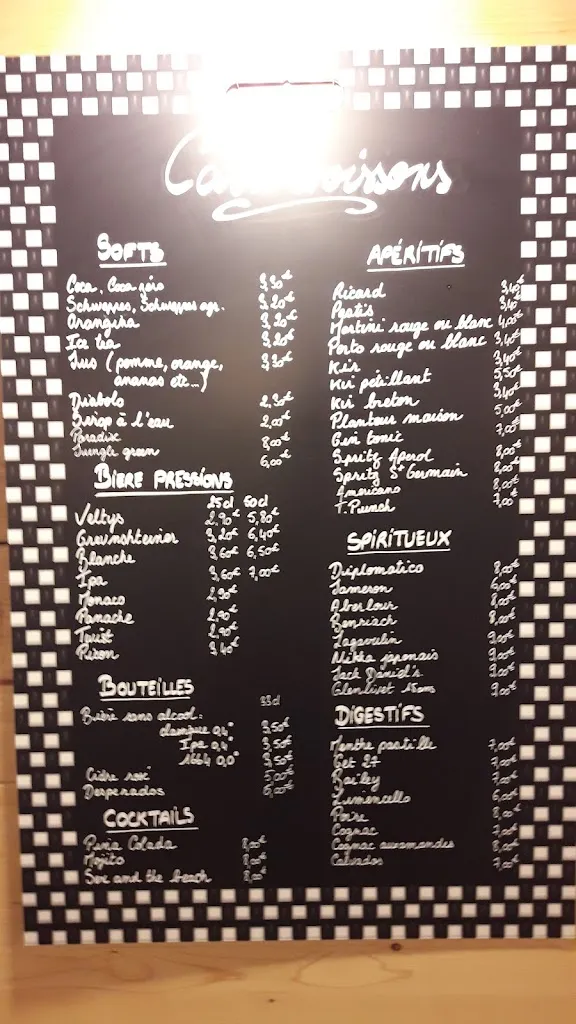 Carte boissons
SOFTS
Coca, Coca zéro 3,30€
Schweppes, Schweppes agr. 3,20€
Orangina 3,20€
Ice tea 3,20€
Jus (pomme, orange, 3,30€
ananas etc...)
Diabolo 2,30€
Sirop à l'eau 2,00€
Paradise 8,00€
Jungle green 6,00€
BIERE PRESSIONS
25cl 50cl
Veltys 2,90€ 5,80€
Greunshteiner 3,20€ 6,40€
Blanche 3,60€ 6,50€
Ipa 3,60€ 7,00€
Monaco 2,90€
Panache 2,90€
Twist 2,90€
Picon 3,40€
BOUTEILLES
33cl
Bière sans alcool:
classique 0,4° 3,50€
Ipa 0,4° 3,50€
1664 0,0° 3,50€
Cidre rosé 5,00€
Desperados 6,00€
COCKTAILS
Pina Colada 8,00€
Mojito 8,00€
Sex and the beach 8,00€
APÉRITIFS
Ricard 3,40€
Pastis 3,40€
Martini rouge ou blanc 4,00€
Porto rouge ou blanc 3,40€
Kir 3,40€
Kir pétillant 5,50€
Kir breton 3,40€
Planteur maison 5,00€
Gin tonic 7,00€
Spritz Aperol 8,00€
Spritz St Germain 8,00€
Americano 8,00€
T.Punch 7,00€
SPIRITUEUX
Diplomatico 8,00€
Jameson 6,00€
Aberlour 8,00€
Benriach 8,00€
Lagavulin 9,00€
Nikka japonais 9,00€
Jack Daniel's 9,00€
Glenlivet 15ans 9,00€
DIGESTIFS
Menthe pastille 7,00€
Get 27 7,00€
Bailey 7,00€
Limoncello 6,00€
Poire 8,00€
Cognac 7,00€
Cognac aux amandes 8,00€
Calvados 7,00€